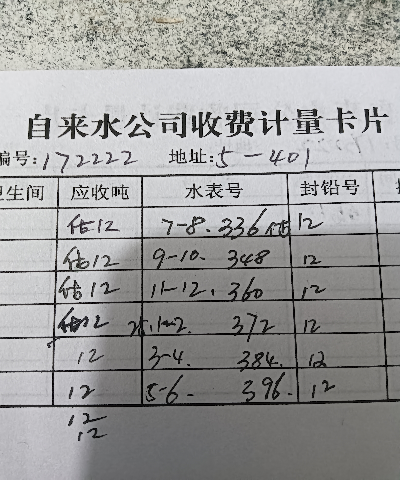 自来水公司收费计量卡片
编号:172222 地址:5-401
卫生间 应收吨 水表号 封铅号
估12 7-8. 336估 12
估12 9-10. 348 12
估12 11-12. 360 12
估12 25.1-2. 372 12
12 3-4. 384. 12
12 5-6. 396. 12
12
12